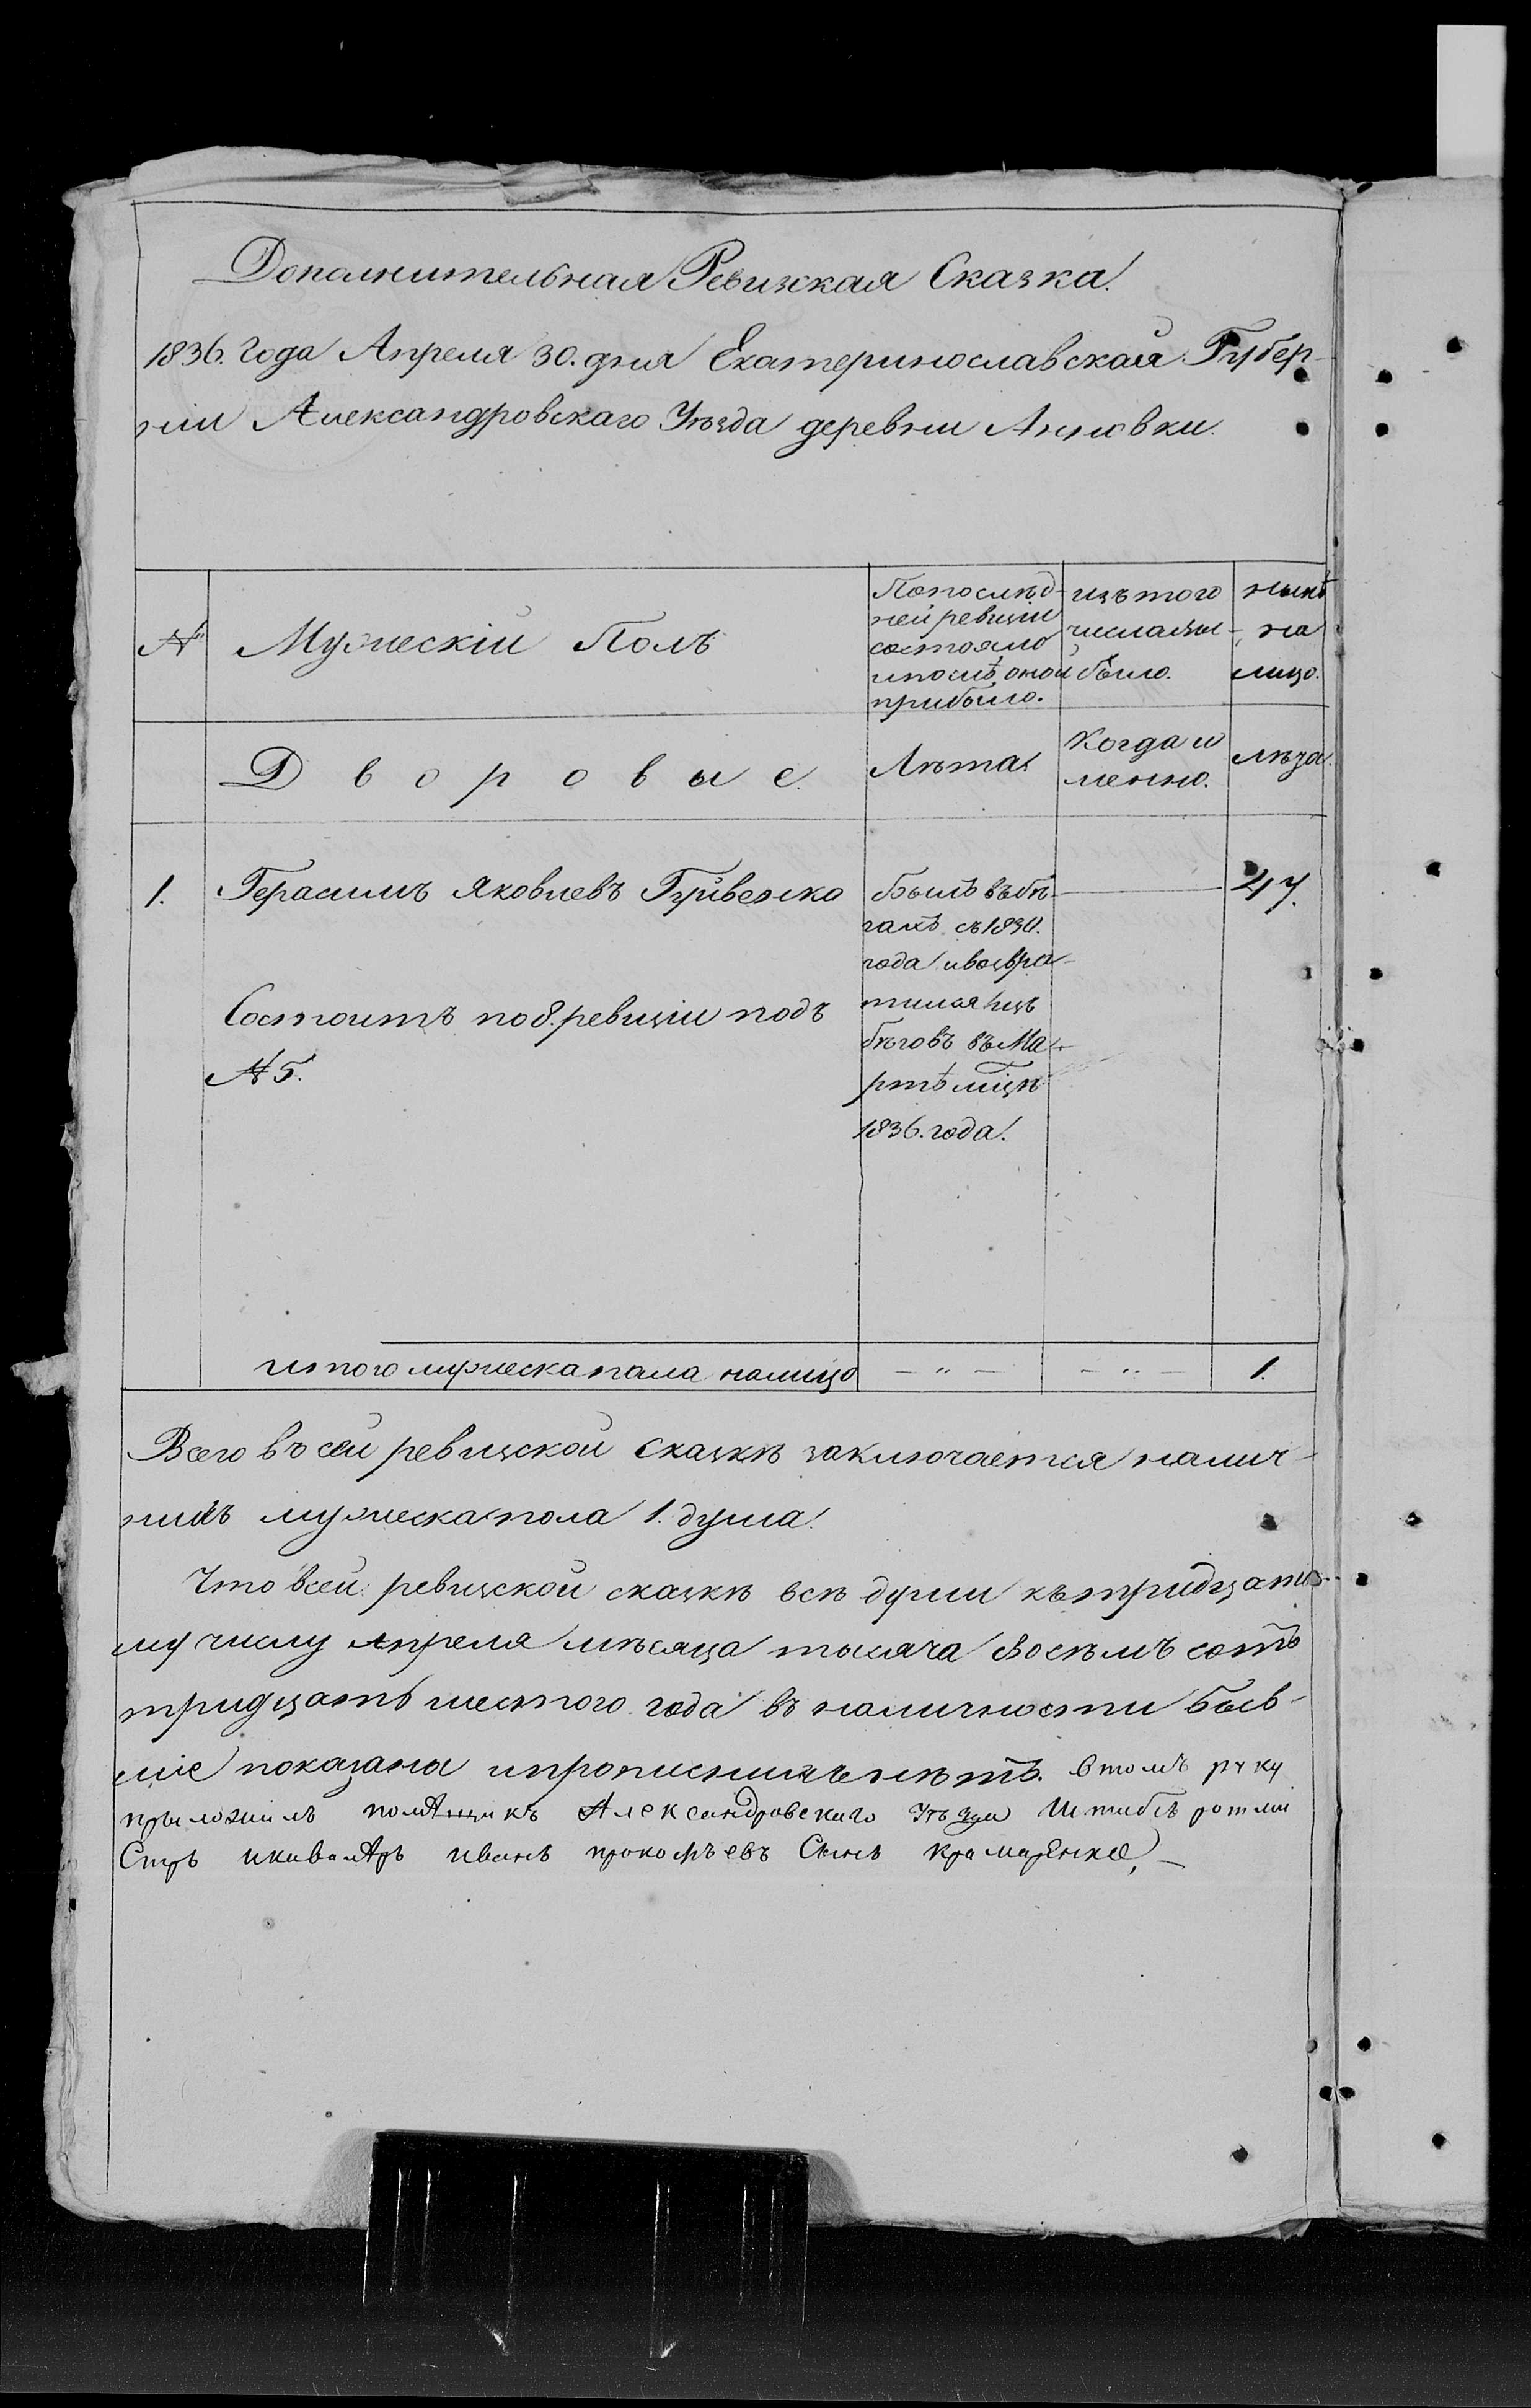 Дополнительная Ревижкая Сказка.
1836. Года Апреля 30. дня Екатеринославской Губер-
ніи Александровскаго Уѣзда деревни Анновки.
№ Мужескій Полъ
По послѣд-
ней ревизіи
состояло
и послѣ оной
прибыло.
изъ того
числа вы-
было.
нынѣ
на
лицо.
Дворовые.
Лѣта.
Когда и
менно.
лѣта.
1. Герасимъ Яковлевъ Гуйвенко
Состоитъ по 8. ревизіи подъ
№ 5.
Былъ въ бѣ-
гахъ съ 1830.
года и возвра-
тился изъ
бѣговъ въ Ма-
ртѣ м͠цѣ
1836. года.
47.
итого мужеска пола налицо — „ — — „ — 1.
Всего въ сей ревизской сказкѣ заключается налич-
нихъ мужеска пола 1. душа.
Что в сей ревизской сказкѣ всѣ души къ тридцато-
му числу апреля мѣсяца тысяча восемъ сотъ
тридцать шестого года въ наличности быв-
шіе показаны и прописнихъ нѣтъ. в томъ руку
прыложилъ помѣщикъ Александровскаго Уѣзда Штабсъ ротми
Стръ и кавалѣръ иванъ прокофьевъ Сынъ крамарЕнко,—